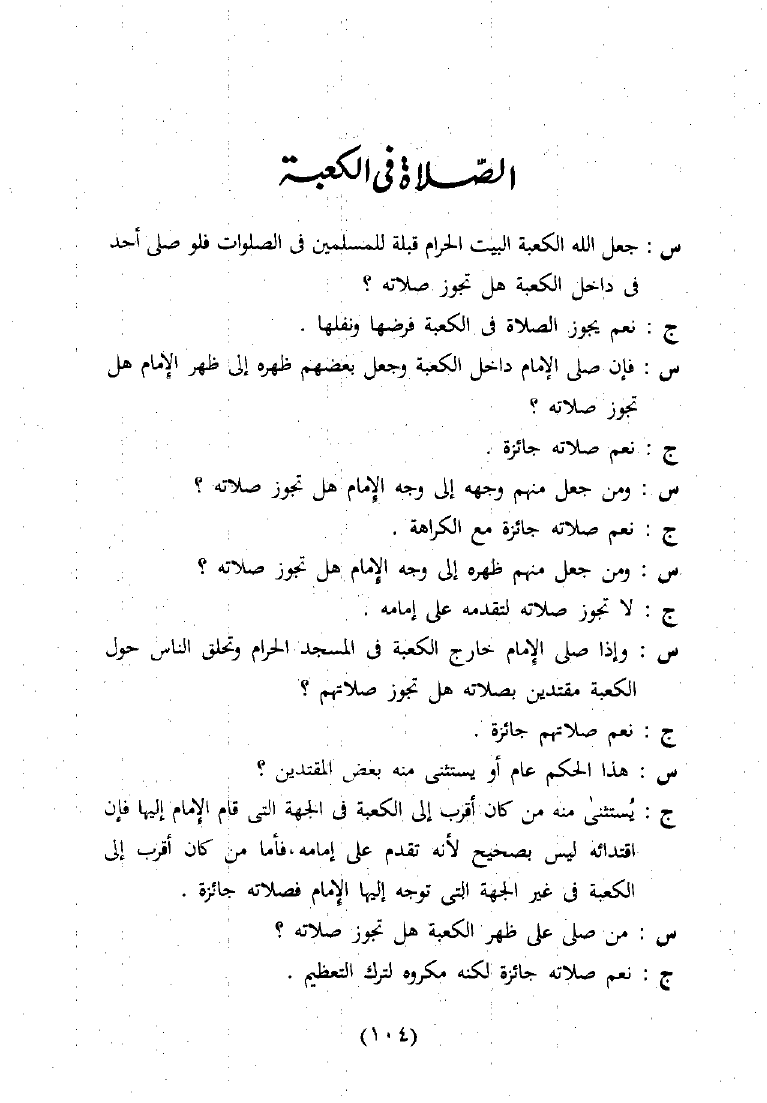 الصّلاة في الكعبة
س : جعل الله الكعبة البيت الحرام قبلة للمسلمين فى الصلوات فلو صلى أحد
فى داخل الكعبة هل تجوز صلاته ؟
ج : نعم يجوز الصلاة فى الكعبة فرضها ونفلها .
س : فإن صلى الإمام داخل الكعبة وجعل بعضهم ظهره إلى ظهر الإمام هل
تجوز صلاته ؟
ج : نعم صلاته جائزة .
س : ومن جعل منهم وجهه إلى وجه الإمام هل تجوز صلاته ؟
ج : نعم صلاته جائزة مع الكراهة .
س : ومن جعل منهم ظهره إلى وجه الإمام هل تجوز صلاته ؟
ج : لا تجوز صلاته لتقدمه على إمامه .
س : وإذا صلى الإمام خارج الكعبة فى المسجد الحرام وتحلق الناس حول
الكعبة مقتدين بصلاته هل تجوز صلاتهم ؟
ج : نعم صلاتهم جائزة .
س : هذا الحكم عام أو يستثنى منه بعض المقتدين ؟
ج : يُستثنىٰ منه من كان أقرب إلى الكعبة فى الجهة التى قام الإمام إليها فإن
اقتدائه ليس بصحيح لأنه تقدم على إمامه، فأما من كان أقرب إلى
الكعبة فى غير الجهة التى توجه إليها الإمام فصلاته جائزة .
س : من صلى على ظهر الكعبة هل تجوز صلاته ؟
ج : نعم صلاته جائزة لكنه مكروه لترك التعظيم .
(١٠٤)